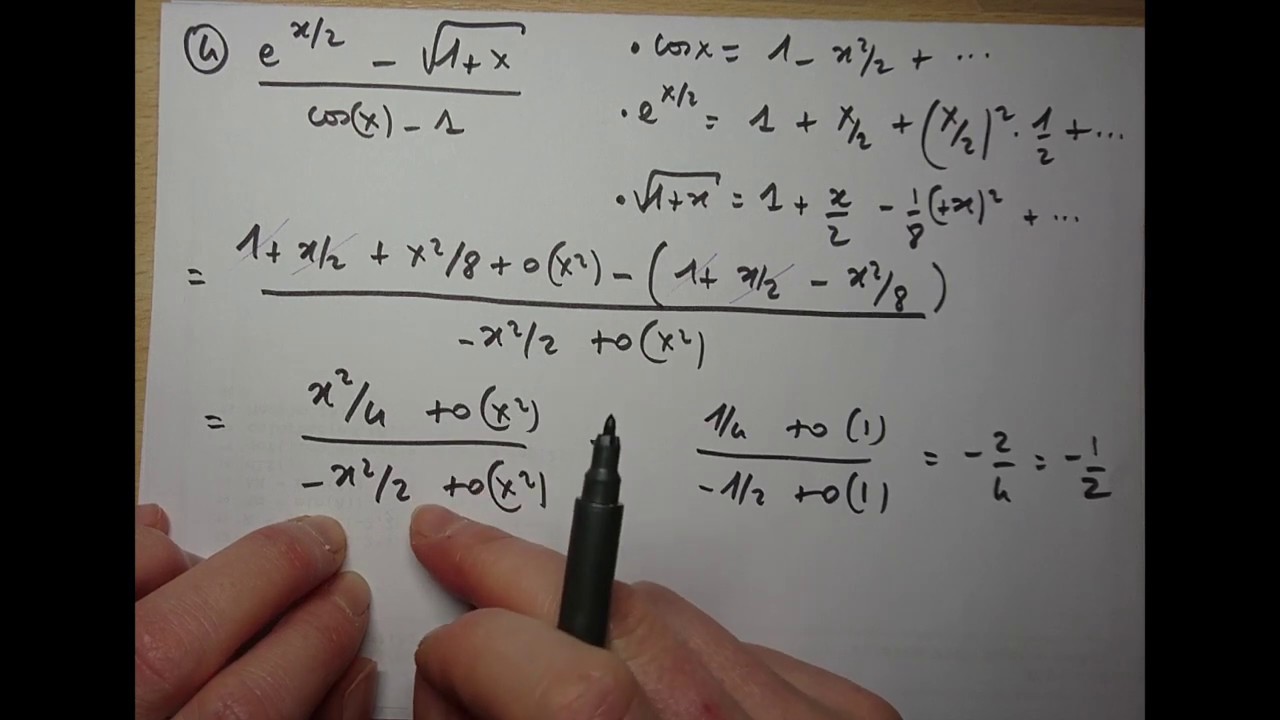 ④ e^{x/2} - √(1+x) / cos(x) - 1
• cos x = 1 - x²/2 + ...
• e^{x/2} = 1 + x/2 + (x/2)² · 1/2 + ...
• √(1+x) = 1 + x/2 - 1/8 (+x)² + ...
= 1 + x/2 + x²/8 + o(x²) - (1 + x/2 - x²/8) / -x²/2 + o(x²)
= x²/4 + o(x²) / -x²/2 + o(x²)
1/4 + o(1) / -1/2 + o(1) = -2/4 = -1/2